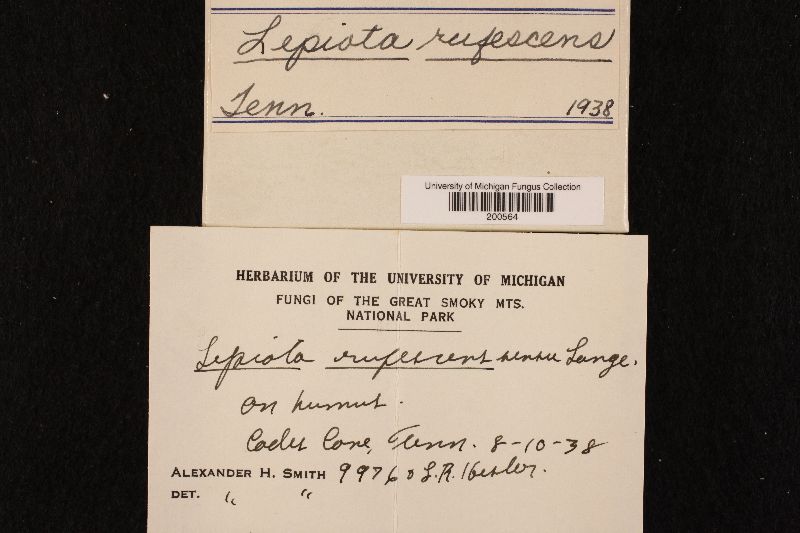 Lepiota rufescens
Tenn. 1938
University of Michigan Fungus Collection
200564
HERBARIUM OF THE UNIVERSITY OF MICHIGAN
FUNGI OF THE GREAT SMOKY MTS.
NATIONAL PARK
Lepiota rufescens sensu Lange.
on humus.
Cades Cove, Tenn. 8-10-38
ALEXANDER H. SMITH 9976 & L.R. Hesler.
DET. " "